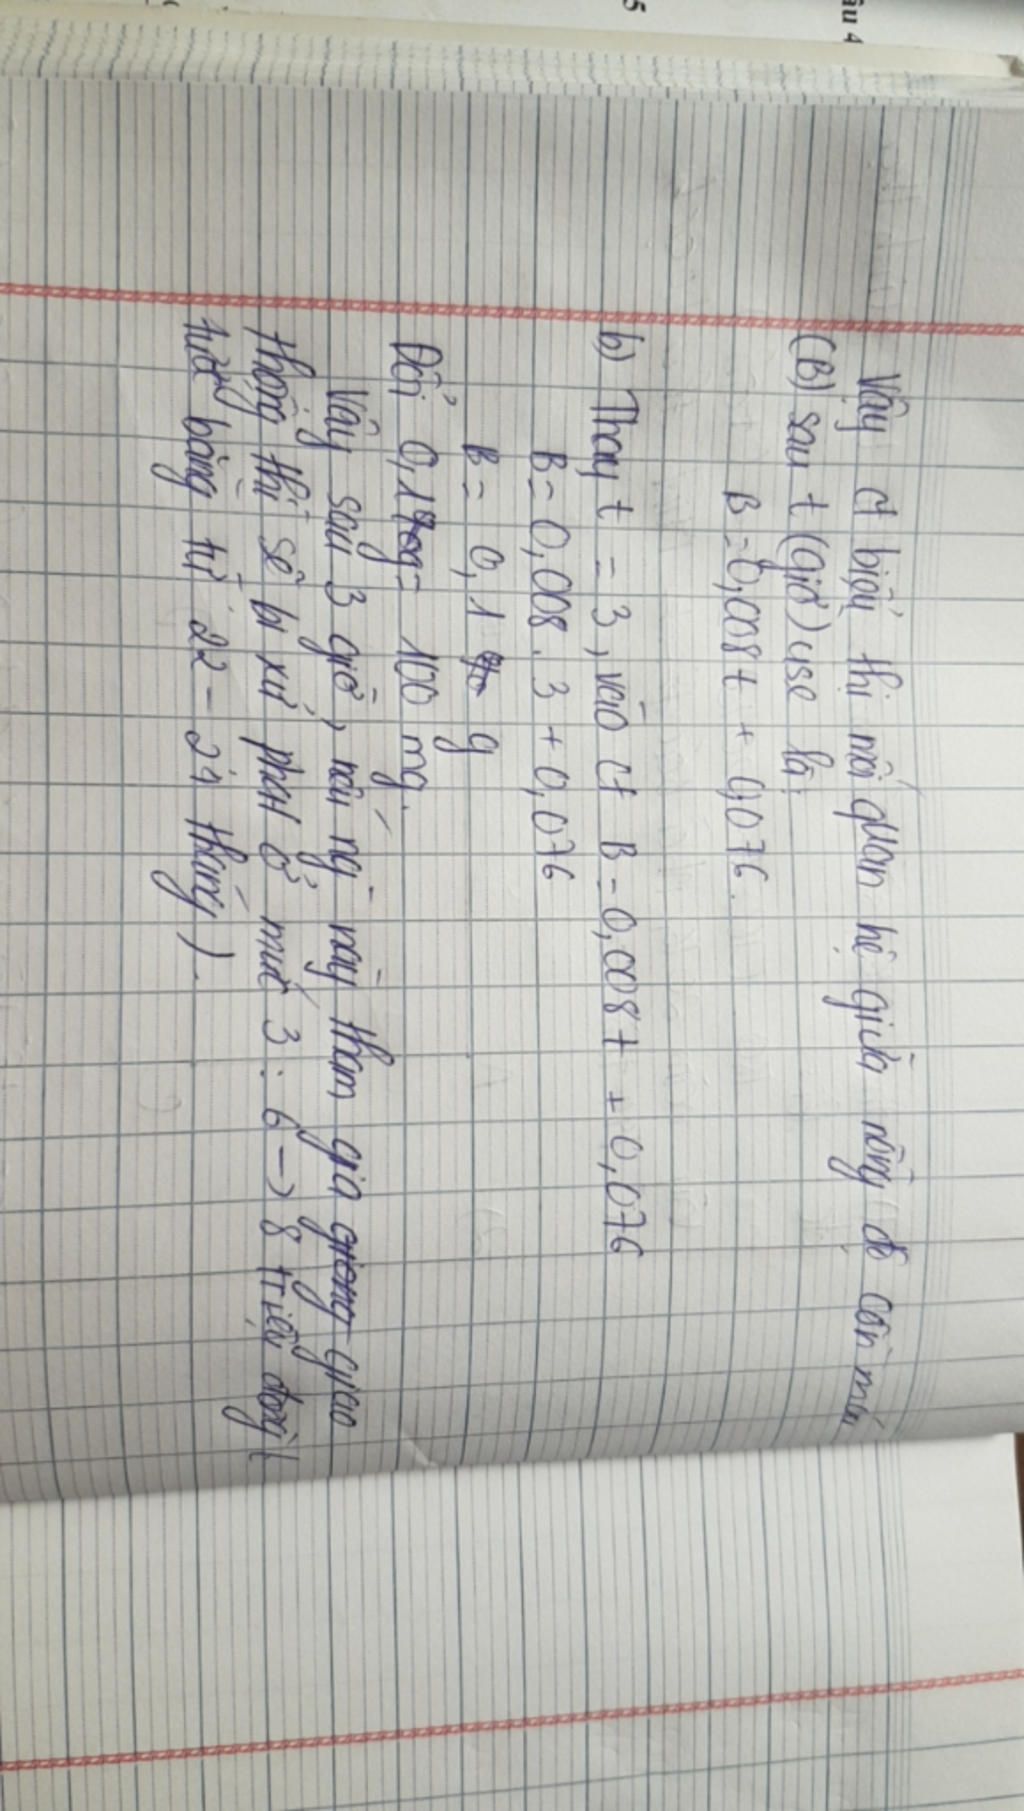 Vậy ct biểu thị mối quan hệ giữa nồng độ cồn máu
(B) sau t (giờ) use là:
B = 0,008t + 0,076.
b) Thay t = 3, vào ct B = 0,008t + 0,076
B = 0,008. 3 + 0,076
B = 0,1 g
Đổi 0,1g = 100 mg.
Vậy sau 3 giờ, nếu ng` này tham gia giao
thông thì sẽ bị xử phạt ở mức 3: 6 → 8 triệu đồng (
tước bằng từ 22 - 24 tháng).
âu 4
5